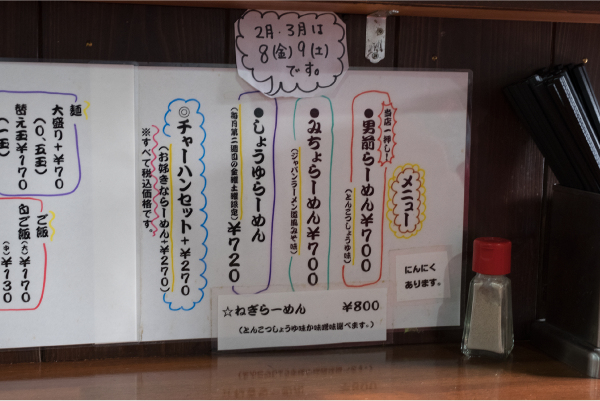 2月・3月は
8(金)9(土)
です。
メニュー
当店一押し!
●男前らーめん¥700
(とんこつしょうゆ味)
●みちょらーめん¥700
(ジャパンラーメン直伝みそ味)
●しょうゆらーめん
(毎月第二週目の金曜土曜限定)¥720
◎チャーハンセット+¥270
(お好きならーめん+¥270)
※すべて税込価格です。
麺
大盛り+¥70
(0.5玉)
替え玉¥170
(一玉)
ご飯
白ご飯(大)¥170
(中)¥130
にんにく
あります。
☆ねぎらーめん ¥800
(とんこつしょうゆ味か味噌味選べます。)